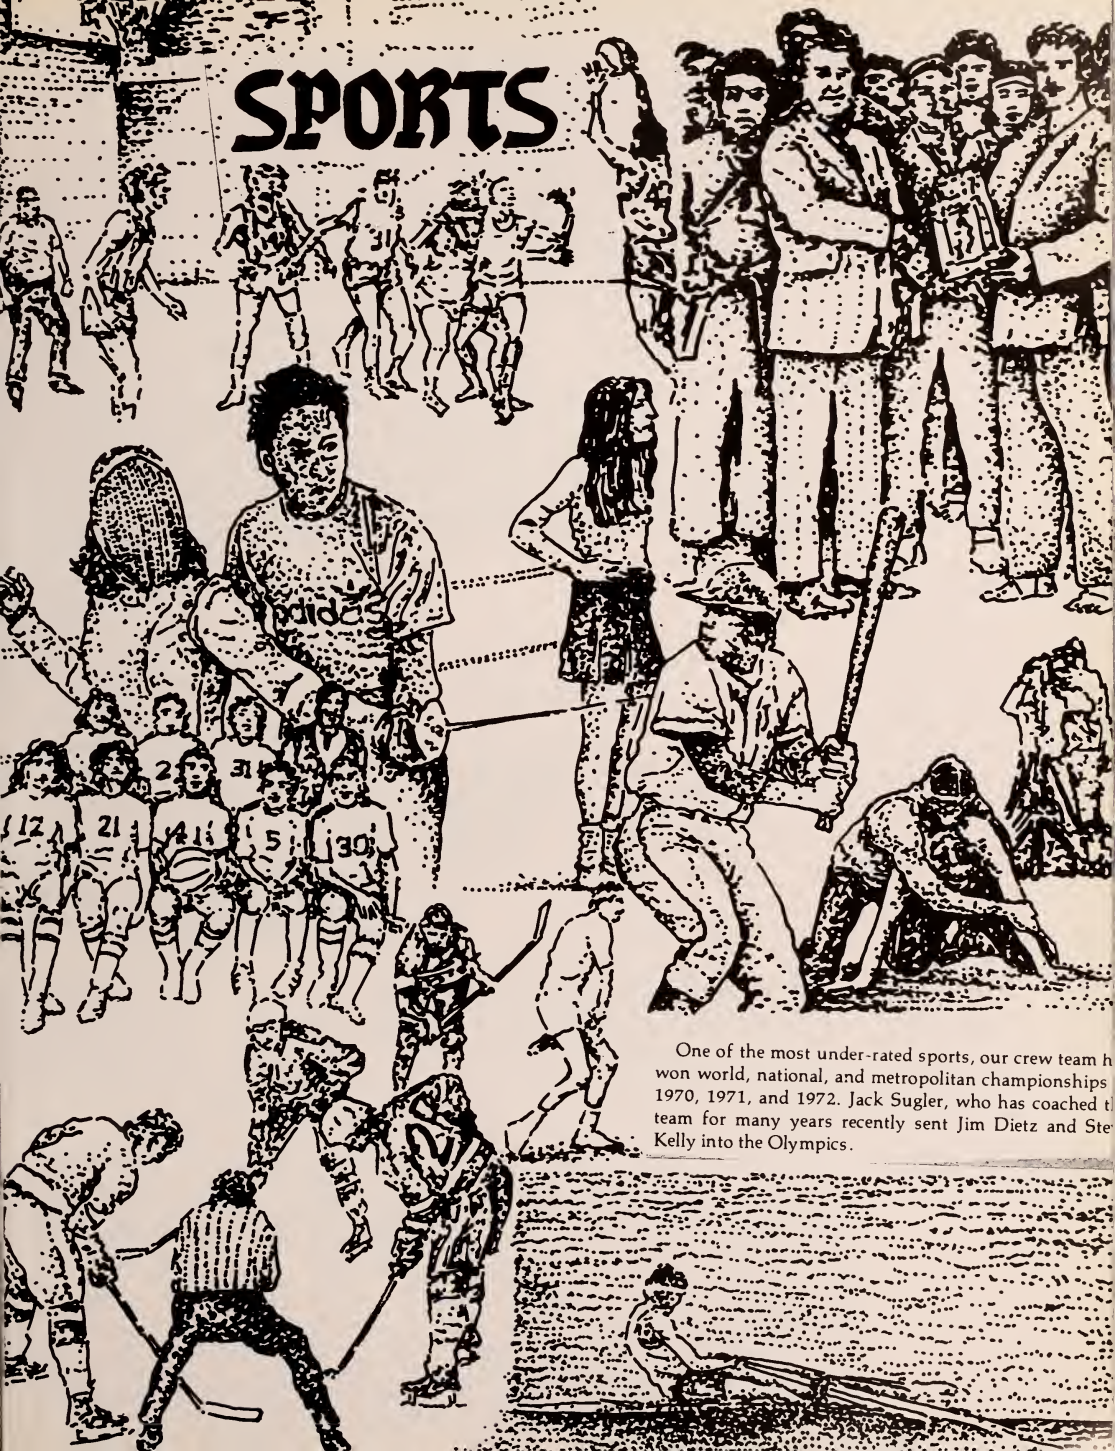 SPORTS
31
adidas
2
31
12
21
41
5
30
2
One of the most under-rated sports, our crew team h
won world, national, and metropolitan championships
1970, 1971, and 1972. Jack Sugler, who has coached t
team for many years recently sent Jim Dietz and Ste
Kelly into the Olympics.